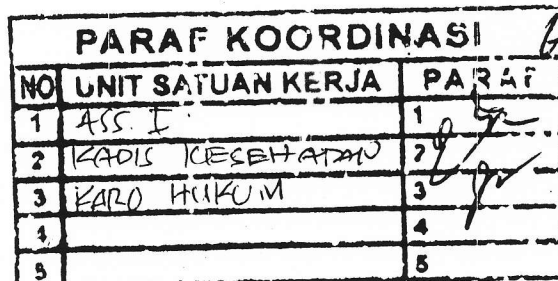 PARAF KOORDINASI
NO UNIT SATUAN KERJA PARAF
1 ASS. I 1
2 KADIS KESEHATAN 2
3 KARO HUKUM 3
4 4
5 5